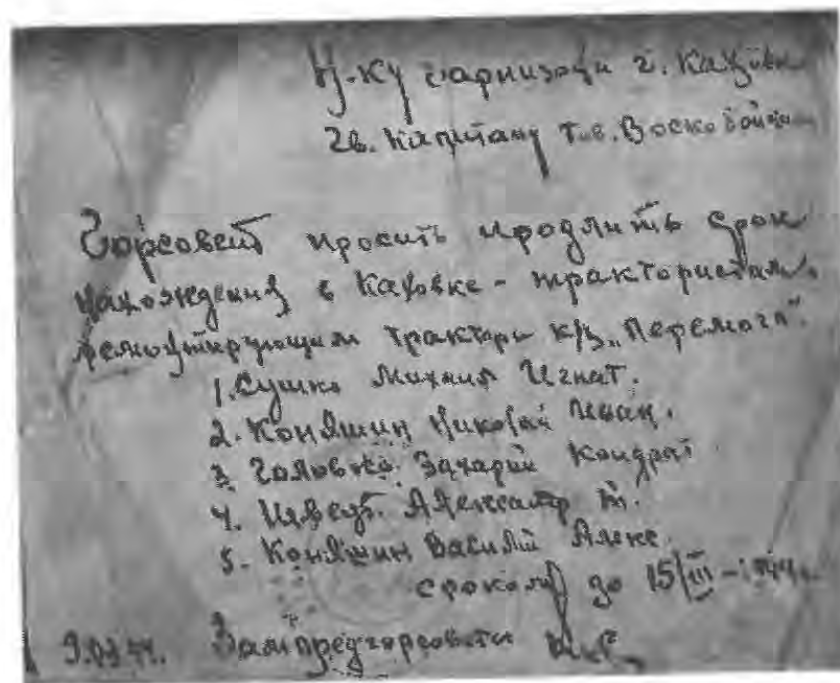 Н-ку гарнизона г. Каховки
Гв. Капитану тов. Воскобойни
Горсовет просить продлить срок
нахождения в Каховке - трактористам,
ремонтирующим трактора к/з „Перемога".
1. Сушко Михаил Игнат.
2. Коняшин Николай Иван.
3 Головко Захарий Кондрат
4. Александр М.
5. Коняшин Василий Алекс.
сроком до 15/III-1944г.
9.03.44. Зампредгорсовета